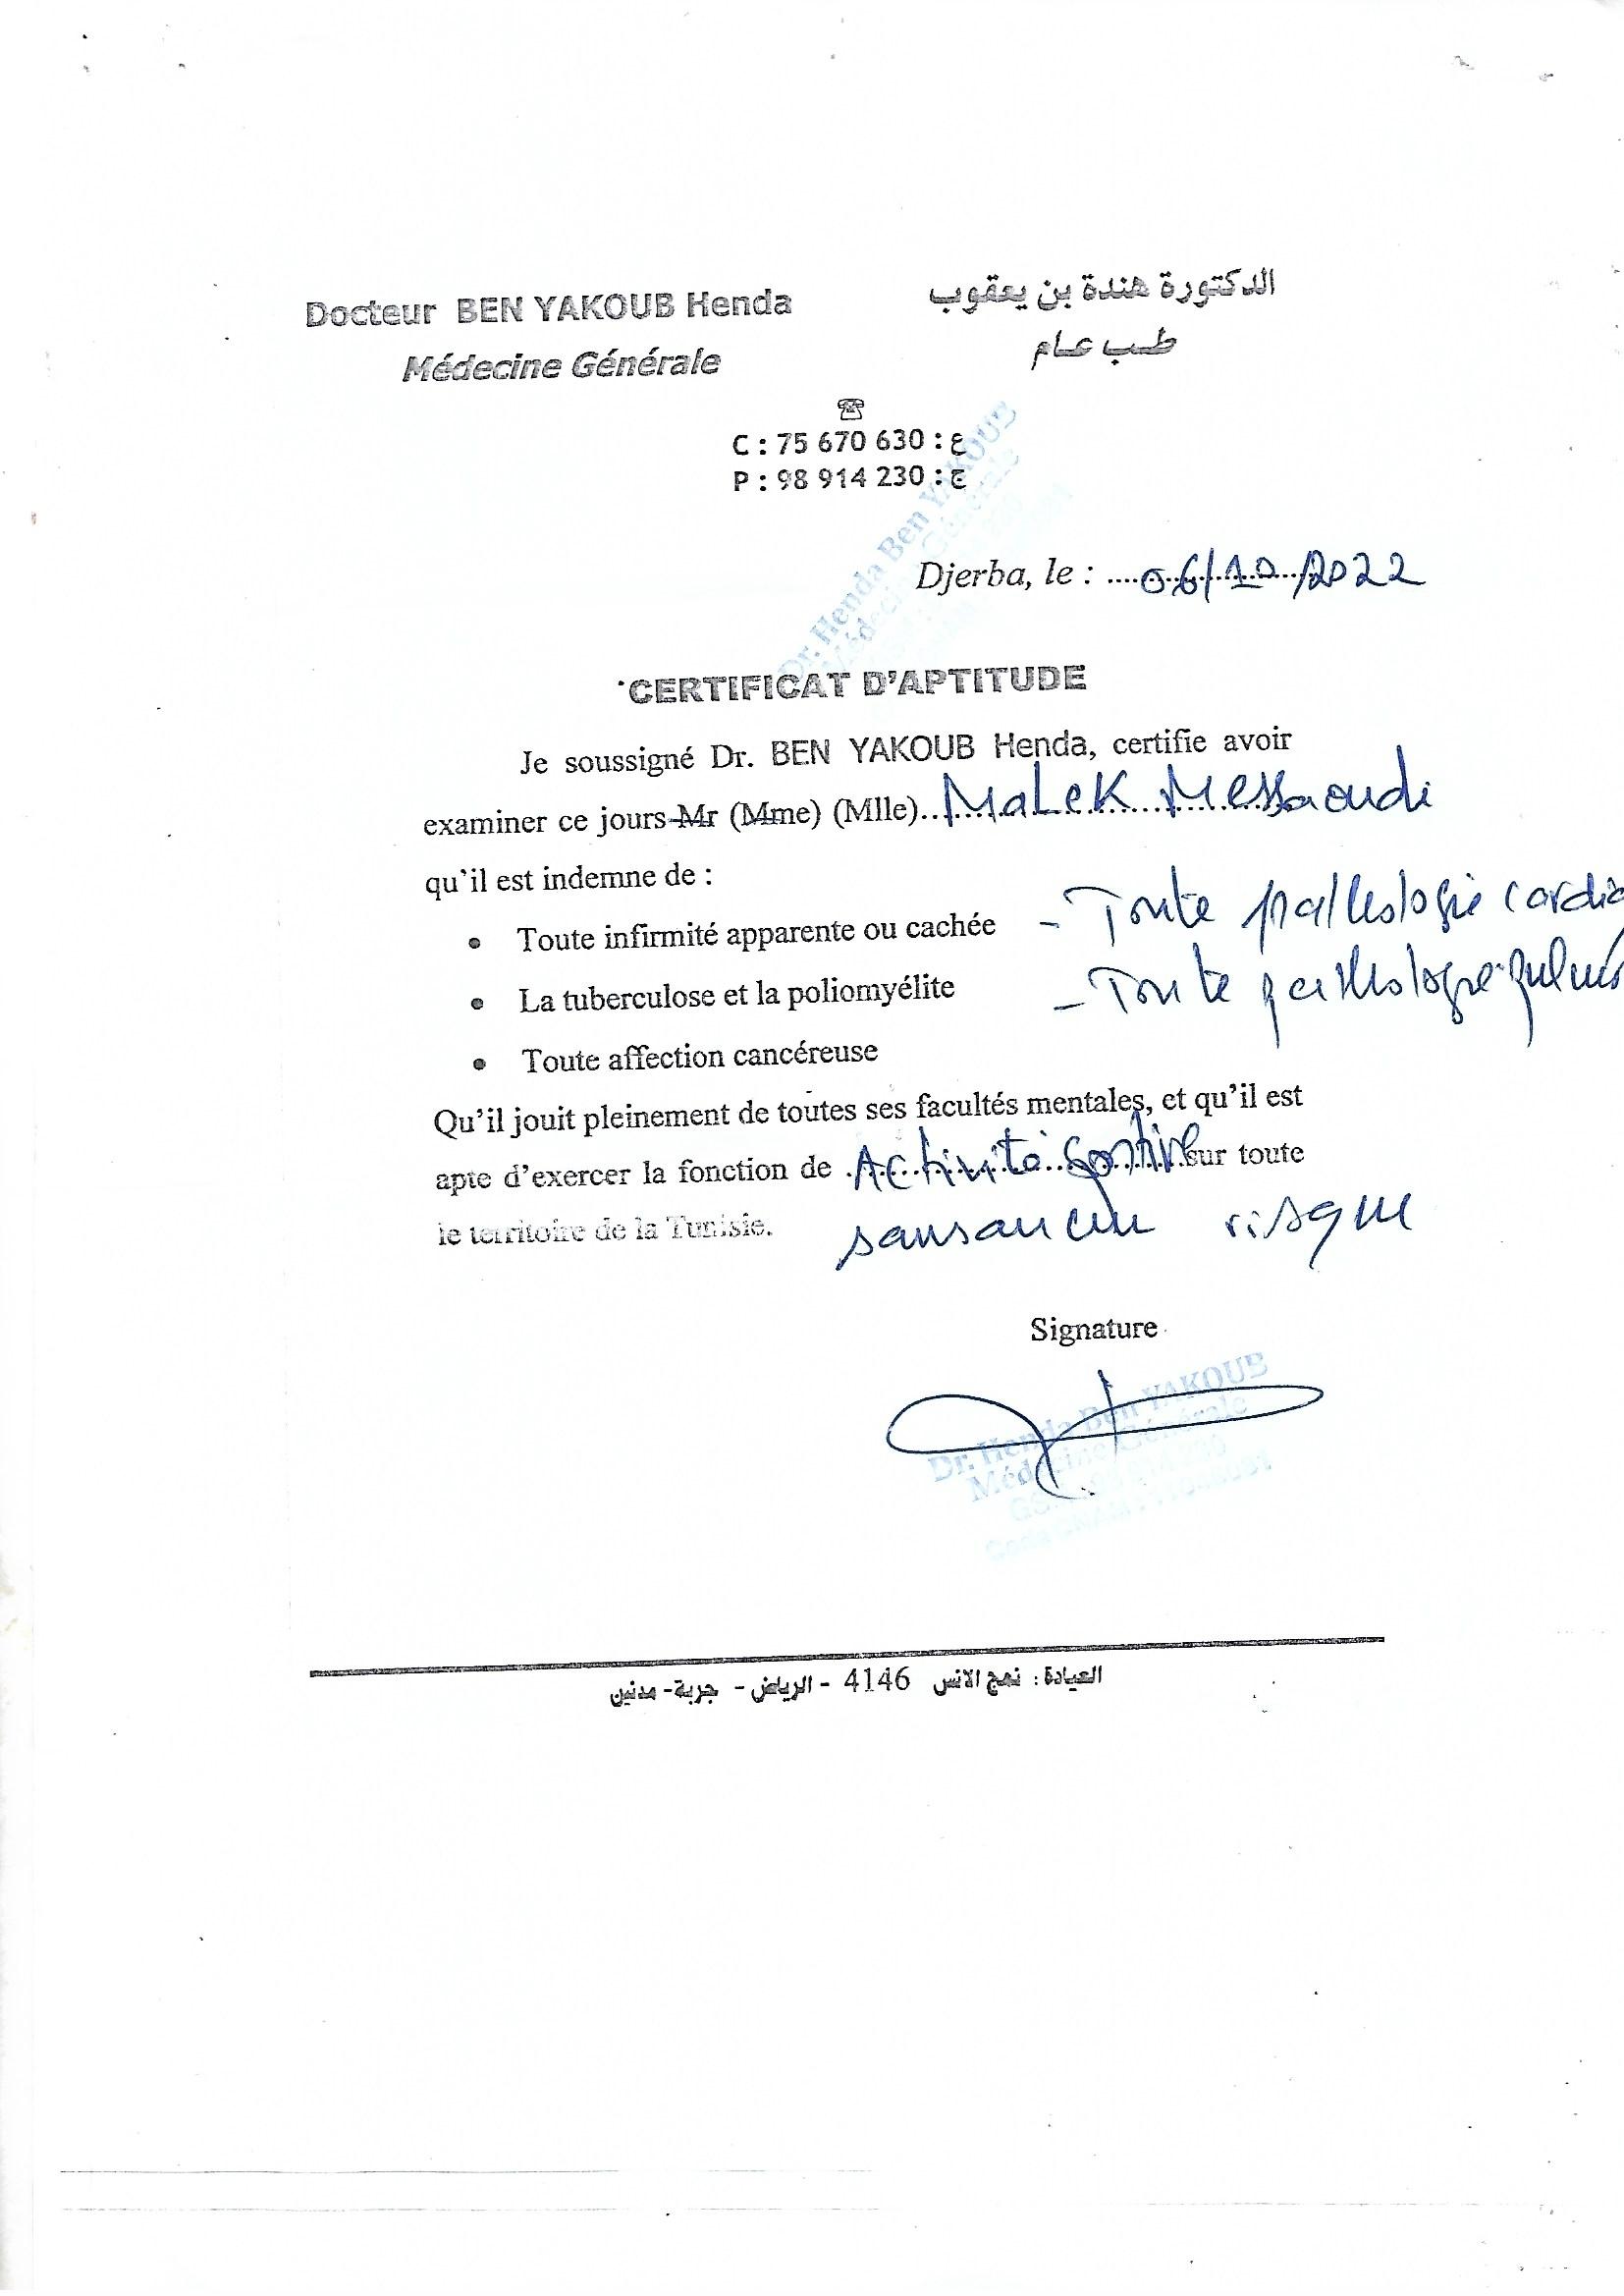 Docteur BEN YAKOUB Henda
Médecine Générale
الدكتورة هندة بن يعقوب
طب عام
C : 75 670 630 : ع
P : 98 914 230 : ج
Dr. Henda Ben YAKOUB
Médecine Générale
Djerba, le : ....06/10/2022
CERTIFICAT D'APTITUDE
Je soussigné Dr. BEN YAKOUB Henda, certifie avoir
examiner ce jours Mr (Mme) (Mlle)..Malek Messaoudi
qu'il est indemne de :
• Toute infirmité apparente ou cachée - Toute pathologie cardia
• La tuberculose et la poliomyélite - Toute pathologie pulmo
• Toute affection cancéreuse
Qu'il jouit pleinement de toutes ses facultés mentales, et qu'il est
apte d'exercer la fonction de Activité Sportive sur toute
le territoire de la Tunisie. sans aucun risque
Signature
Dr. Henda Ben YAKOUB
Médecine Générale
العيادة : نهج الانس 4146 - الرياض - جربة - مدنين